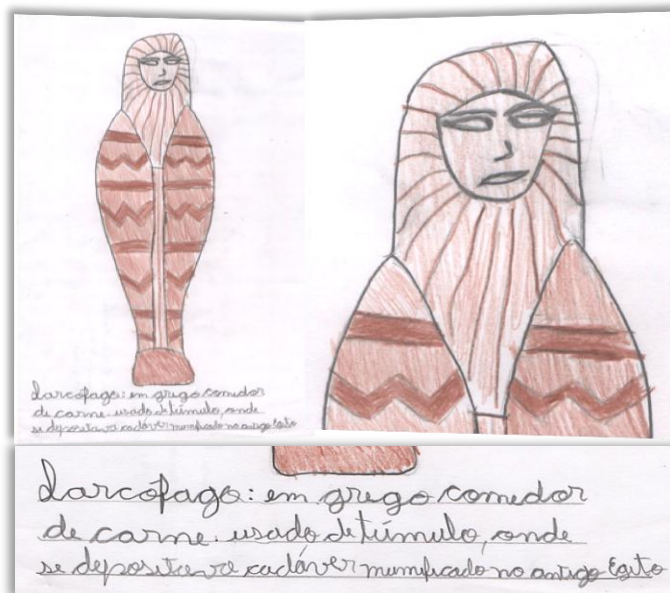 Sarcófago: em grego comedor
de carne. usado de túmulo, onde
se depositava cadáver mumificado no antigo Egito
Sarcófago: em grego comedor
de carne. usado de túmulo, onde
se depositava cadáver mumificado no antigo Egito